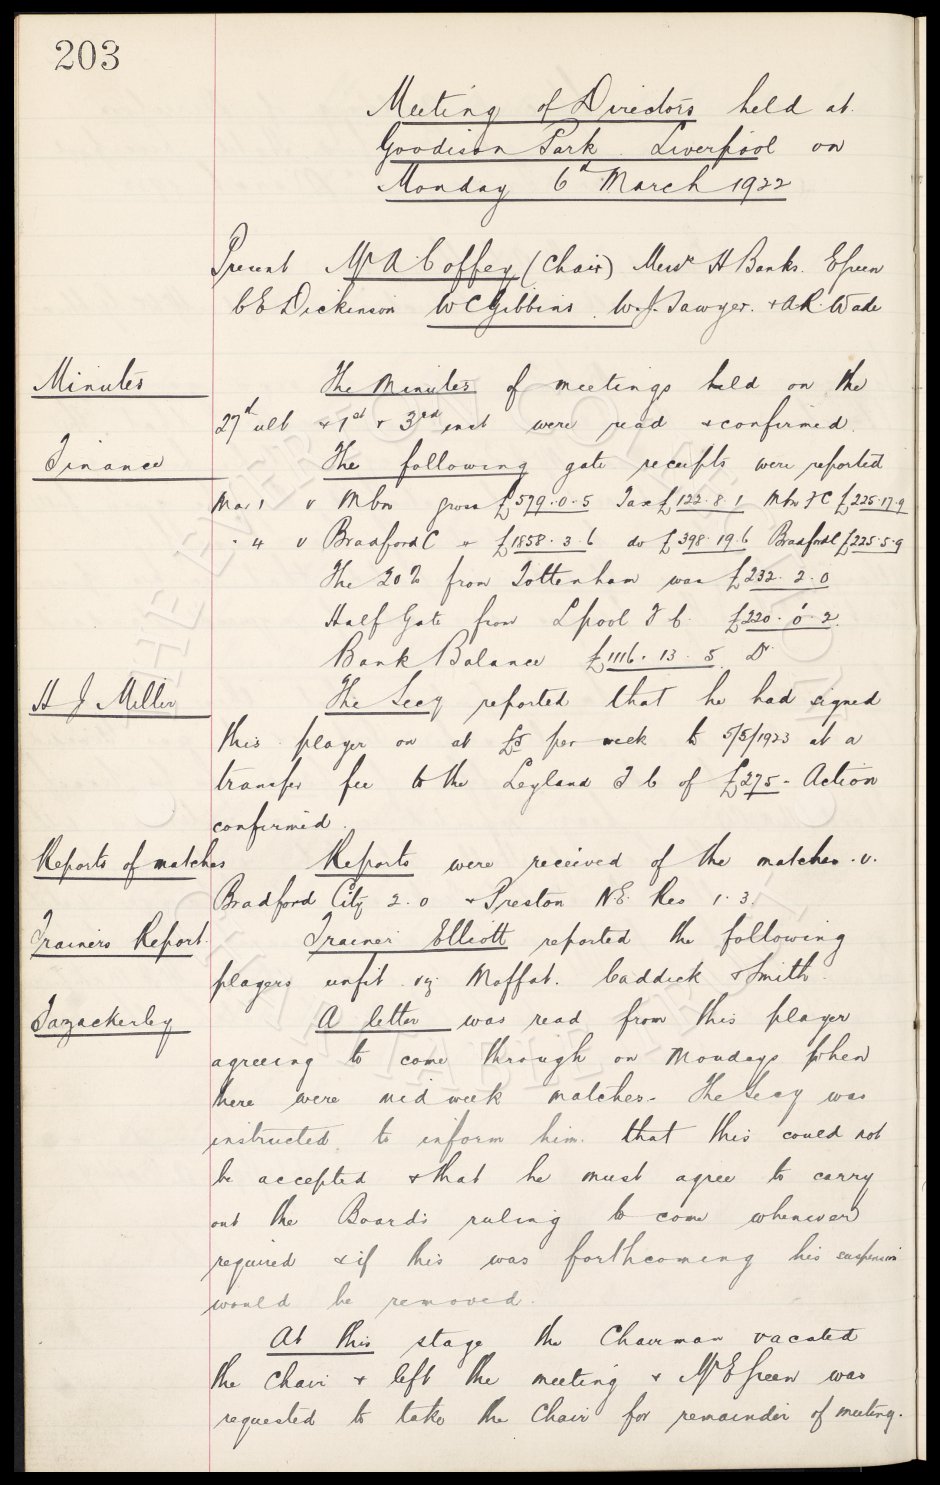 203
Meeting of Directors held at
Goodison Park Liverpool on
Monday 6th March 1922
Present Mr A Coffey (Chair) Messrs H Banks. E Green
C E Dickinson W C Gibbins W. J. Sawyer. & A R. Wade
Minutes The Minutes of meetings held on the
27th ult & 1st & 3rd inst were read & confirmed.
Finance The following gate receipts were reported
Mar 1 v Mbro gross £579.0.5 Tax £122.8.1 Mbro F C £225.17.9
" 4 v Bradford C " £1858.3.6 do £398.19.6 Bradford C £225.5.9
The 20% from Tottenham was £232.2.0
Half Gate from Lpool F C. £220.0.2.
Bank Balance £1116.13.5 Dr
H J Miller The Secy reported that he had signed
this player on at £5 per week to 5/5/1923 at a
transfer fee to the Leyland F C of £275 - Action
confirmed.
Reports of matches Reports were received of the matches. v.
Bradford City 2.0 & Preston N E. Res 1.3.
Trainers Report. Trainer Elliott reported the following
players unfit. viz Moffat. Caddick & Smith.
Fazackerley A letter was read from this player
agreeing to come through on Mondays when
there were midweek matches. The Secy was
instructed to inform him that this could not
be accepted & that he must agree to carry
out the Boards ruling to come whenever
required & if this was forthcoming his suspension
would be removed.
At this stage the Chairman vacated
the Chair & left the meeting & Mr E Green was
requested to take the Chair for remainder of meeting.